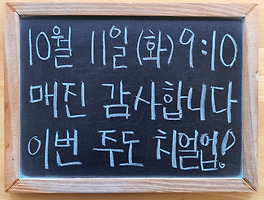 10월 11일 (화) 9:10
매진 감사합니다
이번 주도 치얼업!